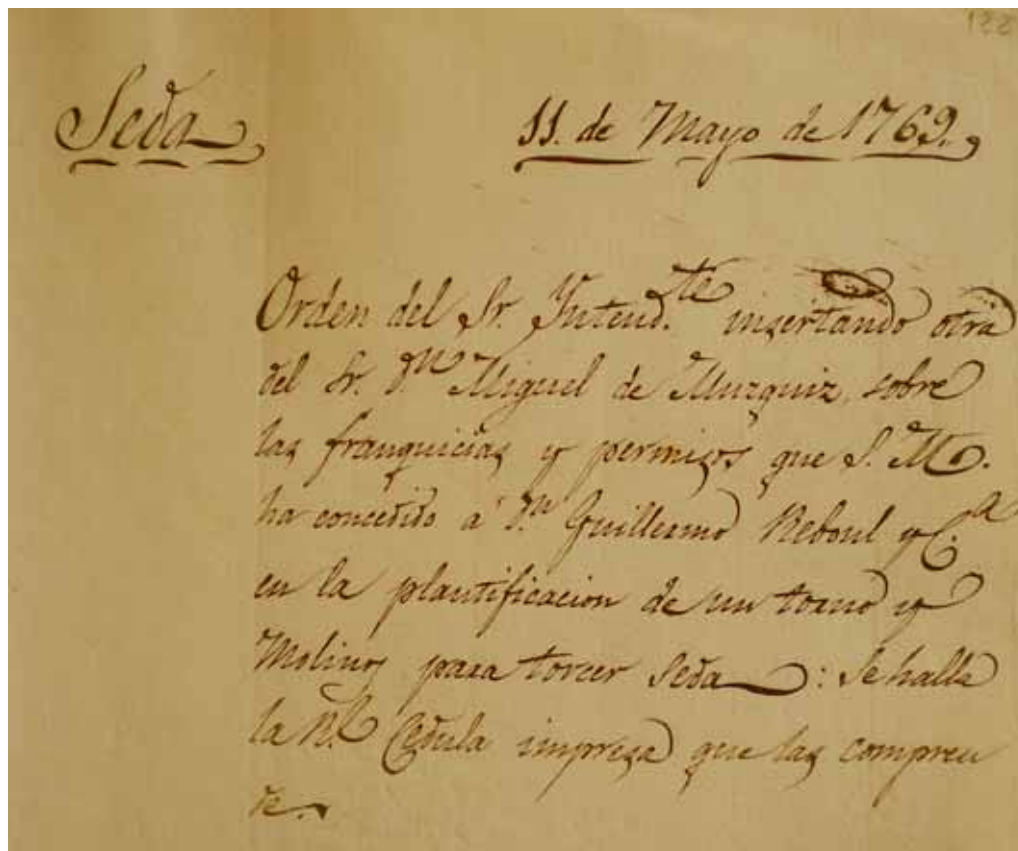 Seda
11. de Mayo de 1769.
Orden del Sr. Yntend.te insertando otra
del Sr. Dn Miguel de Muzquiz, sobre
las franquicias y permisos que S. M.
ha concedido a Dn Guillermo Reboul y C.a
en la plantificacion de un torno y
Molinos para torcer Seda: Se halla
la Rl. Cedula impresa que las compren
de.